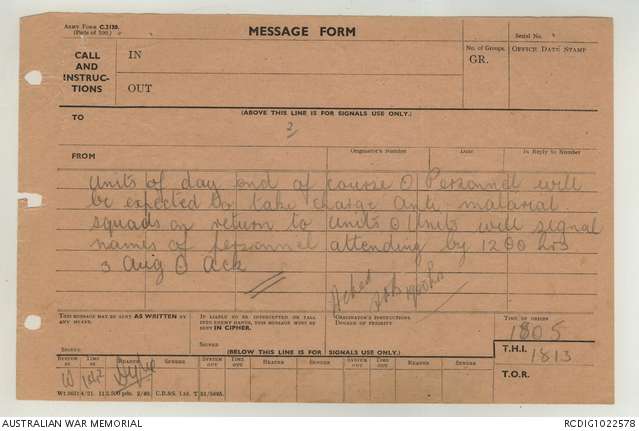 ARMY FORM C.2128.
(Pads of 100.)
MESSAGE FORM
Serial No.
CALL AND INSTRUC-TIONS
IN
OUT
No. of Groups.
GR.
OFFICE DATE STAMP
(ABOVE THIS LINE IS FOR SIGNALS USE ONLY.)
TO
2
FROM
Originator's Number
Date
In Reply to Number
Units of day end of course O Personnel will
be expected to take charge anti malarial
squads on return to units O Units will signal
names of personnel attending by 1200 hrs
3 Aug O Ack
THIS MESSAGE MAY BE SENT AS WRITTEN BY ANY MEANS.
IF LIABLE TO BE INTERCEPTED OR FALL INTO ENEMY HANDS, THIS MESSAGE MUST BE SENT IN CIPHER.
ORIGINATOR'S INSTRUCTIONS
DEGREE OF PRIORITY
TIME OF ORIGIN
1805
SIGNED
SIGNED
(BELOW THIS LINE IS FOR SIGNALS USE ONLY.)
T.H.I.
1813
T.O.R.
SYSTEM IN
TIME IN
READER
SENDER
SYSTEM OUT
TIME OUT
READER
SENDER
SYSTEM OUT
TIME OUT
READER
SENDER
W
AUSTRALIAN WAR MEMORIAL
RCDIG1022578